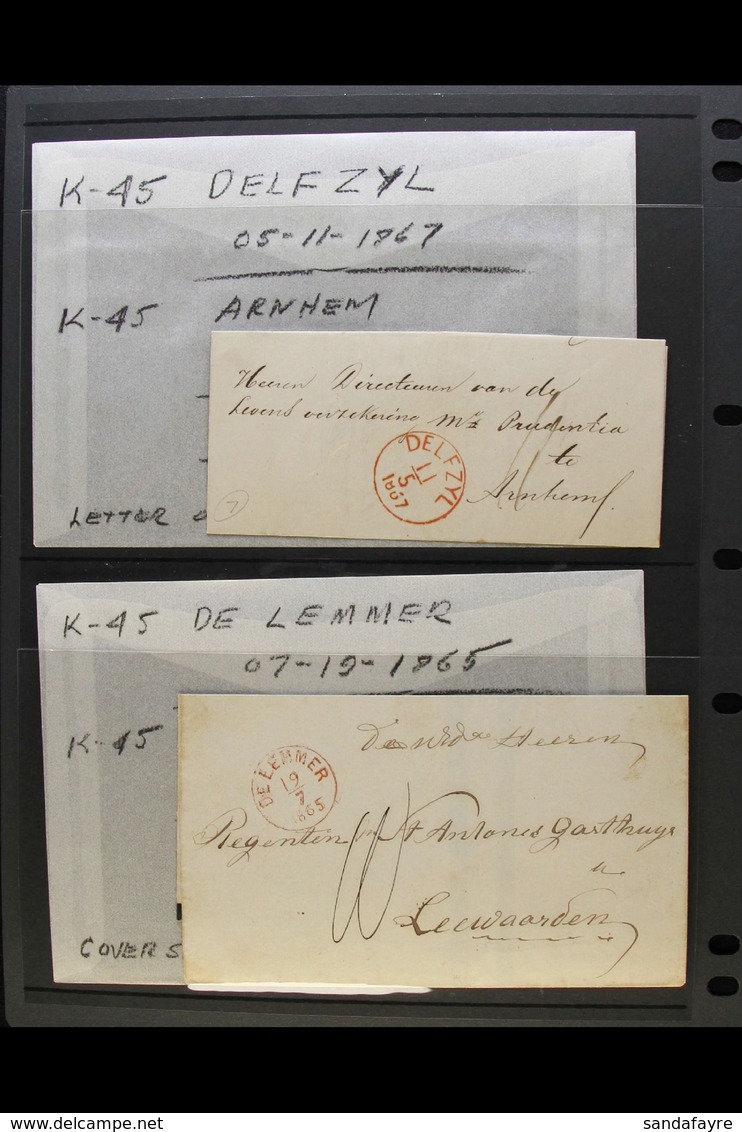 K-45 DELFZYL
05-11-1867
K-45 ARNHEM
Heeren Directeuren van de
Levens verzekering Mij Prudentia
te
Arnhem
DELFZYL
11
5
1867
7
LETTER
K-45 DE LEMMER
07-19-1865
K-45
De Heeren
DE LEMMER
19
7
1865
Regenten St Antonis Gasthuys
Leewaarden
COVER S
delcampe.net
sandafayre